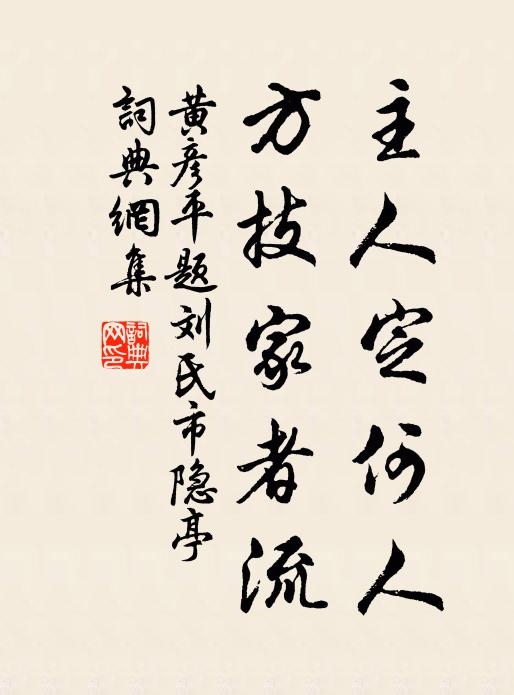 主人定何人
方技家者流
黄彦平题刘氏市隐亭
詞典網集
詞典网印